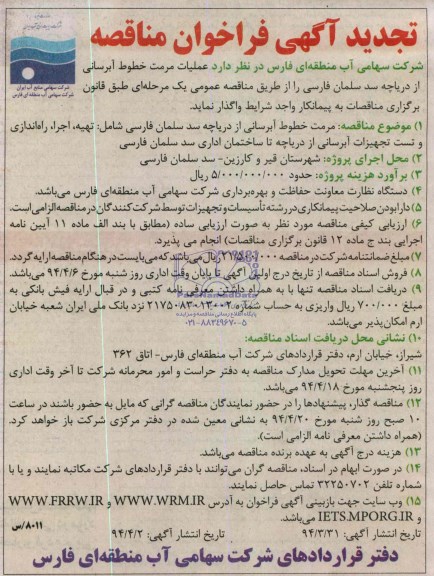 تجدید آگهی فراخوان مناقصه
شرکت سهامی آب منطقه‌ای فارس در نظر دارد عملیات مرمت خطوط آبرسانی
از دریاچه سد سلمان فارسی را از طریق مناقصه عمومی یک مرحله‌ای طبق قانون
برگزاری مناقصات به پیمانکار واجد شرایط واگذار نماید.
۱) موضوع مناقصه: مرمت خطوط آبرسانی از دریاچه سد سلمان فارسی شامل: تهیه، اجرا، راه‌اندازی
و تست تجهیزات آبرسانی از دریاچه تا ساختمان اداری سد سلمان فارسی
۲) محل اجرای پروژه: شهرستان قیر و کارزین- سد سلمان فارسی
۳) برآورد هزینه پروژه: حدود ۵/۰۰۰/۰۰۰/۰۰۰ ریال
۴) دستگاه نظارت معاونت حفاظت و بهره‌برداری شرکت سهامی آب منطقه‌ای فارس می‌باشد.
۵) دارا بودن صلاحیت پیمانکاری در رشته تأسیسات و تجهیزات توسط شرکت کنندگان در مناقصه الزامی است.
۶) ارزیابی کیفی مناقصه مورد نظر به صورت ارزیابی ساده (مطابق با بند الف ماده ۱۱ آیین نامه
اجرایی بند ج ماده ۱۲ قانون برگزاری مناقصات) انجام می پذیرد.
۷) مبلغ ضمانتنامه شرکت در مناقصه ریال می‌باشد که می‌بایست در هنگام مناقصه ارایه گردد.
۸) فروش اسناد مناقصه از تاریخ درج اولین آگهی تا پایان وقت اداری روز شنبه مورخ ۹۴/۴/۶ می‌باشد.
۹) دریافت اسناد مناقصه تنها با به همراه داشتن معرفی نامه کتبی و در قبال ارایه فیش بانکی به
مبلغ ۷۰۰/۰۰۰ ریال واریزی به حساب شماره ۲۱۷۵۰۸۳۰۱۳۰۰۲ نزد بانک ملی ایران شعبه خیابان
ارم امکان‌پذیر می‌باشد.
۱۰) نشانی محل دریافت اسناد مناقصه:
شیراز، خیابان ارم، دفتر قراردادهای شرکت آب منطقه‌ای فارس- اتاق ۳۶۲
۱۱) آخرین مهلت تحویل مدارک مناقصه به دفتر حراست و امور محرمانه شرکت تا آخر وقت اداری
روز پنجشنبه مورخ ۹۴/۴/۱۸ می‌باشد.
۱۲) مناقصه گذار، پیشنهادها را در حضور نمایندگان مناقصه گرانی که مایل به حضور باشند در ساعت
۱۰ صبح روز شنبه مورخ ۹۴/۴/۲۰ به نشانی معین شده در دفتر مرکزی شرکت باز خواهد کرد.
(همراه داشتن معرفی نامه الزامی است).
۱۳) هزینه درج آگهی به عهده برنده مناقصه می‌باشد.
۱۴) در صورت ابهام در اسناد، مناقصه گران می‌توانند با دفتر قراردادهای شرکت مکاتبه نمایند و یا با
شماره تلفن ۳۲۲۵۰۷۰۲ تماس حاصل نمایند.
۱۵) وب سایت جهت بازبینی آگهی فراخوان به آدرس WWW.WRM.IR و WWW.FRRW.IR
و IETS.MPORG.IR می‌باشد.
۸۰۱۱/س
تاریخ انتشار آگهی: ۹۴/۳/۳۱ تاریخ انتشار آگهی: ۹۴/۴/۲
دفتر قراردادهای شرکت سهامی آب منطقه‌ای فارس
شرکت سهامی منابع آب ایران
شرکت سهامی آب منطقه ای فارس
ParsNamadData
پایگاه اطلاع رسانی مناقصه و مزایده
۰۲۱-۸۸۳۴۹۶۷۰-۵